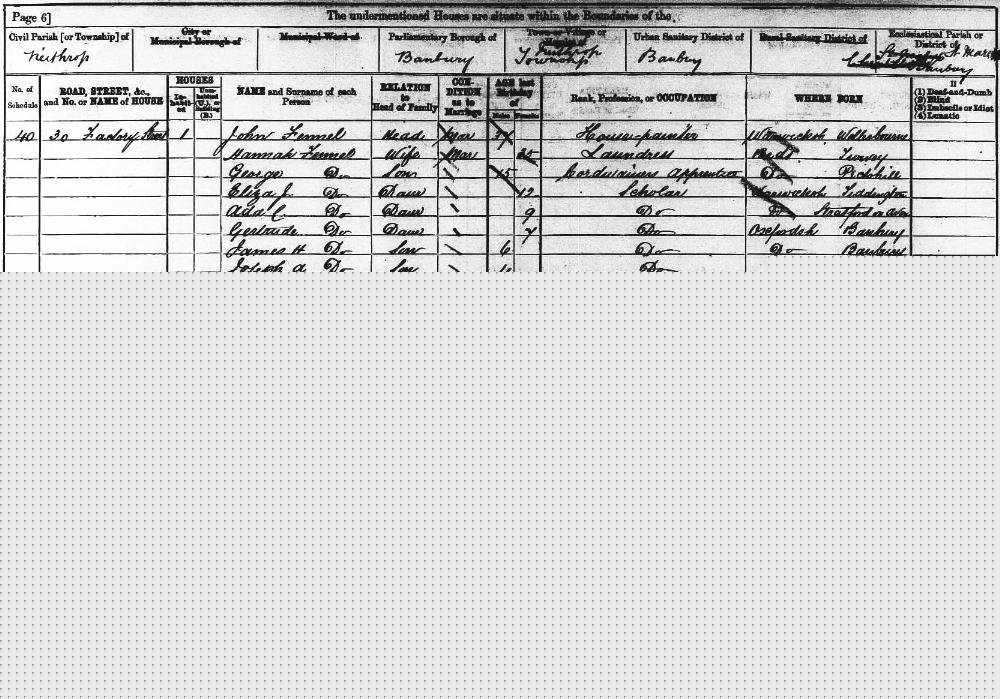 Page 6] The undermentioned Houses are situate within the Boundaries of the
Civil Parish [or Township] of City or Municipal Borough of Municipal Ward of Parliamentary Borough of Town or Village or Urban Sanitary District of Rural Sanitary District of Ecclesiastical Parish or District of
Neithrop Banbury Neithrop Township Banbury Banbury
No. of Schedule ROAD, STREET, &c., and No. or NAME of HOUSE HOUSES Inhabited Uninhabited (U.), or Building (B.) NAME and Surname of each Person RELATION to Head of Family CONDITION as to Marriage AGE last Birthday of Males Females Rank, Profession, or OCCUPATION WHERE BORN (1) Deaf-and-Dumb (2) Blind (3) Imbecile or Idiot (4) Lunatic
40 30 Factory Street 1 John Fennel Head Mar 37 House-painter Warwicksh
Hannah Fennel Wife Mar 35 Laundress Beds Turvey
George Do Son 15 Cordwainers Apprentice Do
Eliza J. Do Daur 12 Scholar Warwicksh Tiddington
Ada C. Do Daur 9 Do Do Stratford on Avon
Gertrude Do Daur 7 Do Oxfordsh Banbury
James H Do Son 6 Do Do Banbury
Joseph A Do Son Do